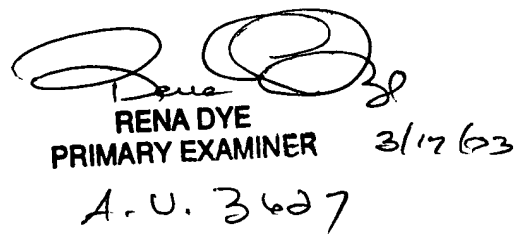 Rena
RENA DYE
PRIMARY EXAMINER 3/17/03
A.U. 3627